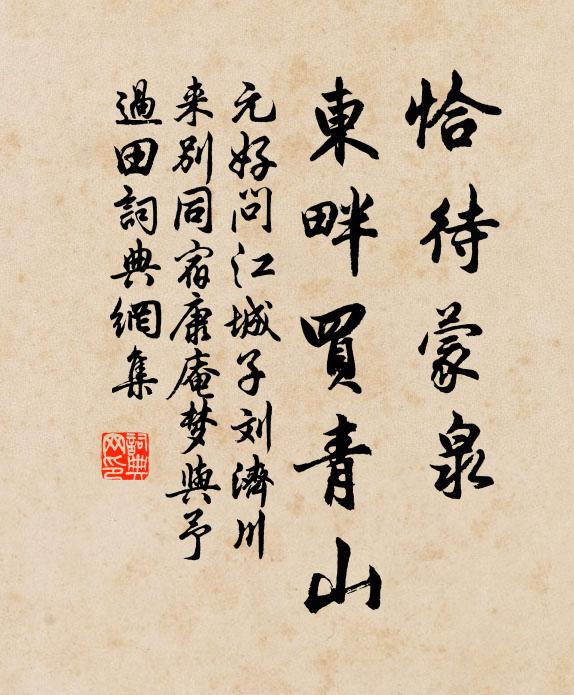 恰待蒙泉
東畔買青山
元好问江城子刘濟川
来别同宿廉庵梦與予
過田詞典網集
詞典网印